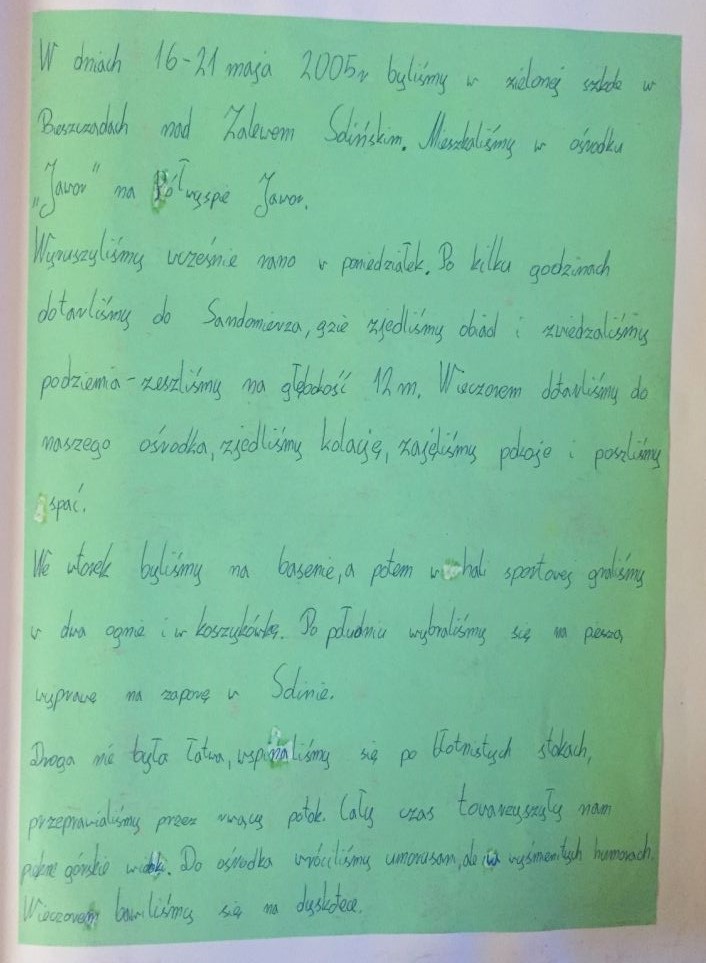 W dniach 16-21 maja 2005r byliśmy w zielonej szkole w
Bieszczadach nad Zalewem Solińskim. Mieszkaliśmy w ośrodku
„Jawor" na Półwyspie Jawor.
Wyruszyliśmy wcześnie rano w poniedziałek. Po kilku godzinach
dotarliśmy do Sandomierza, gzie zjedliśmy obiad i zwiedzaliśmy
podziemia - zeszliśmy na głębokość 12 m. Wieczorem dotarliśmy do
naszego ośrodka, zjedliśmy kolację, zajęliśmy pokoje i poszliśmy
spać.
We wtorek byliśmy na basenie, a potem w hali sportowej graliśmy
w dwa ognie i w koszykówkę. Po południu wybraliśmy się na pieszą
wyprawę na zaporę w Solinie.
Droga nie była łatwa, wspinaliśmy się po błotnistych stokach,
przeprawialiśmy przez rwący potok. Cały czas towarzyszyły nam
piękne górskie widoki. Do ośrodka wróciliśmy umorusani, ale w wyśmienitych humorach.
Wieczorem bawiliśmy się na dyskotece.